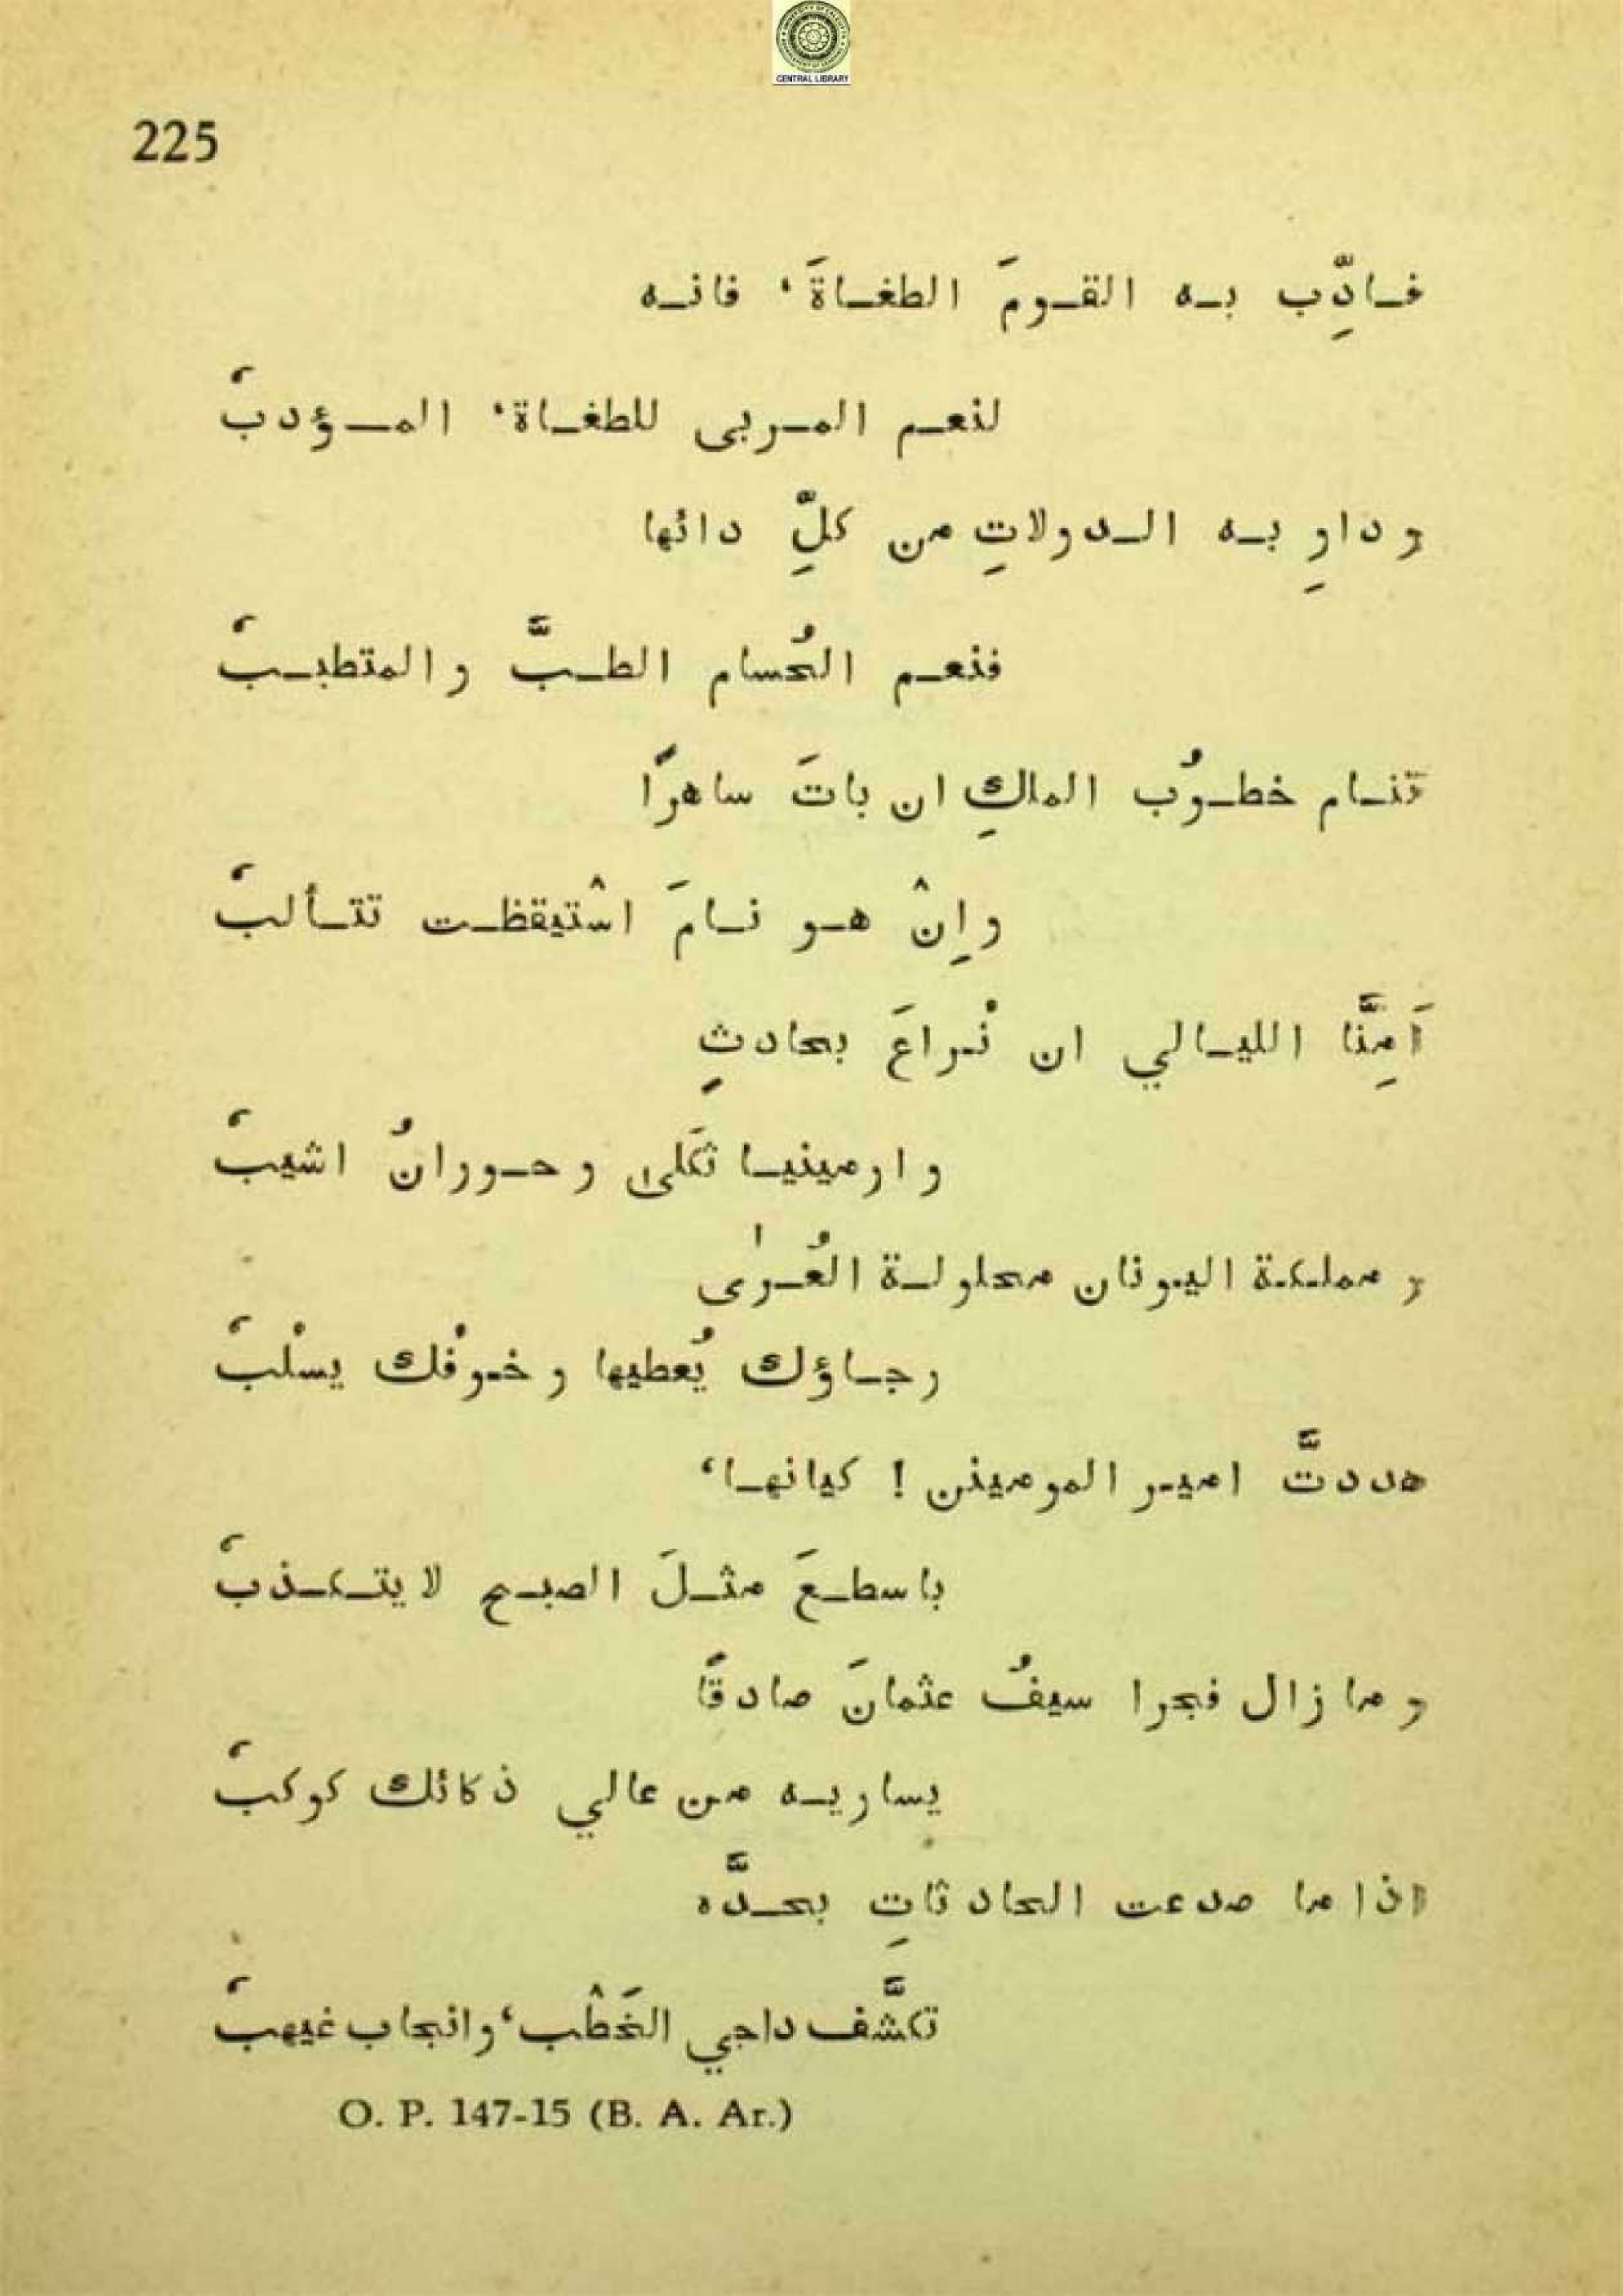 CENTRAL LIBRARY
225
فادِّب به القومَ الطغاةَ، فانه
لنعم المربى للطغاة، المؤدبُ
و داوِ به الدولاتِ من كلِّ دائها
فنعم الحُسام الطبَّ و المتطببُ
تنام خطوُب الملكِ ان باتَ ساهرًا
و اِنْ هو نامَ اسْتيقظت تتألبُ
اَمِنَّا الليالي ان نُراعَ بحادثٍ
و ارمينيا ثكلىٰ و حورانُ اشيبُ
و مملكة اليونان محلولة العُرىٰ
رجاؤك يُعطيها و خوْفك يسْلبُ
هددتَّ امير المومينن ! كيانها،
باسطعَ مثلَ الصبح لا يتكذبُ
و ما زال فجرا سيفُ عثمانَ صادقًا
يساريه من عالي ذكائك كوكبُ
اذا ما صدعت الحادثاتِ بحدَّه
تكشَّف داجي الخَطْب، و انجاب غيهبُ
O. P. 147-15 (B. A. Ar.)